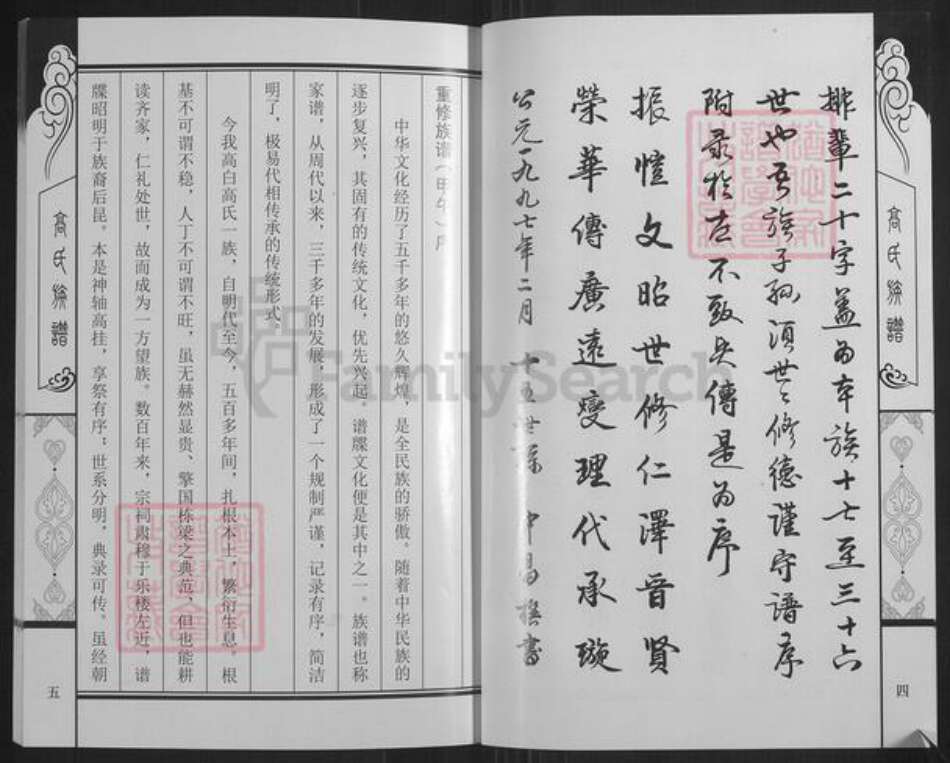 高氏族譜
四
排輩二十字蓋为本族十七至三十六
世也吾族子孫须世々修德谨守谱序
附录於左不致失傳是为序
振愷文昭世修仁澤晋賢
榮華傳廣遠變理代承璇
公元一九九七年二月 十五世孫 中 撰書
重修族谱(甲午)序
中华文化经历了五千多年的悠久辉煌，是全民族的骄傲。随着中华民族的
逐步复兴，其固有的传统文化，优先兴起。谱牒文化便是其中之一。族谱也称
家谱，从周代以来，三千多年的发展，形成了一个规制严谨，记录有序，简洁
明了，极易代相传承的传统形式。
今我高白高氏一族，自明代至今，五百多年间，扎根本土，繁衍生息。根
基不可谓不稳，人丁不可谓不旺，虽无赫然显贵、擎国栋梁之典范，但也能耕
读齐家，仁礼处世，故而成为一方望族。数百年来，宗祠肃穆于乐楼左近，谱
牒昭明于族裔后昆。本是神轴高挂，享祭有序；世系分明，典录可传。虽经朝
高氏族譜
五
FamilySearch